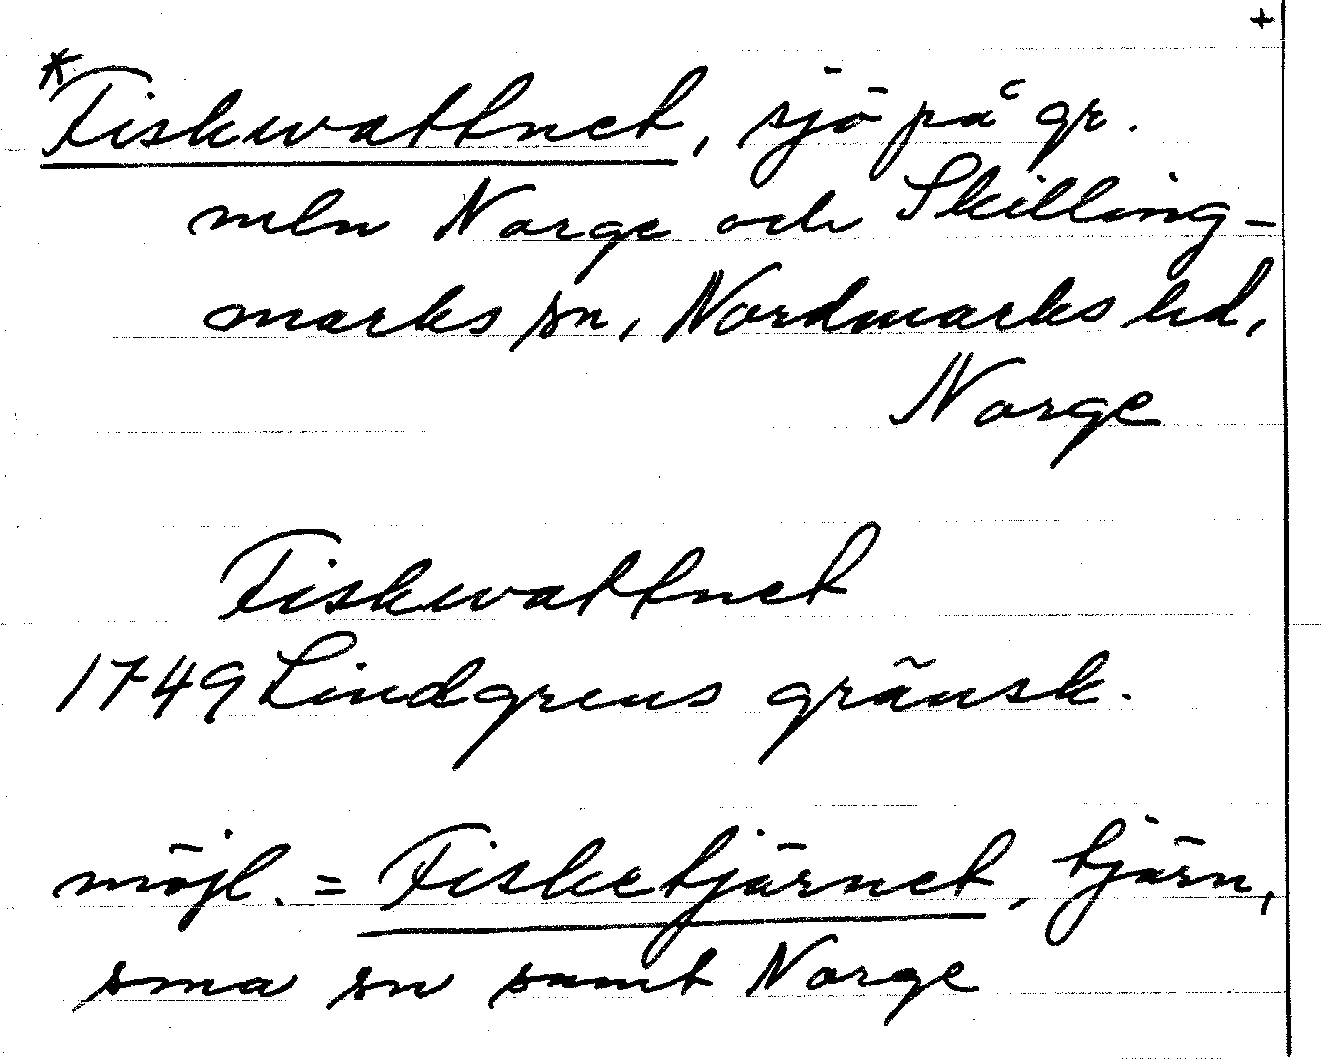 +
*Fiskwattnet, sjö på gr.
mln Norge och Skilling-
marks sn, Nordmarks hd,
Norge
Fiskwattnet
1749 Lindgrens gränsk.
möjl. = Fisketjärnet, tjärn,
sma sn samt Norge